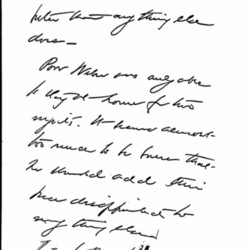 better than anything else
does —
Poor Wilson was only able
to stay at home for two
nights. It seems almost
too much to be borne that
he should add this
disappointment to
everything else